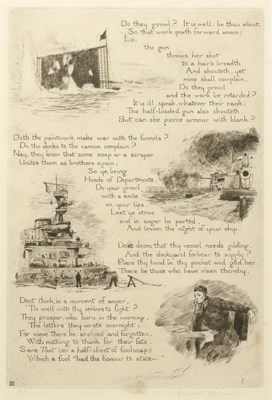 Do they growl? It is well: be thou silent,
So that work goeth forward amain;
Lo, the gun
throws her shot
to a hair's breadth
And shouteth, yet
none shall complain.
Do they growl
and the work be retarded?
It is ill, speak, whatever their rank;
The half-loaded gun also shouteth
But can she pierce armour with blank?
Doth the paintwork make war with the funnels?
Do the decks to the cannon complain?
Nay, they know that some soap or a scraper
Unites them as brothers again;
So ye, being
Heads of Departments,
Do your growl
with a smile
on your lips
Lest ye strive
and in anger be parted,
And lessen the might of your ship.
Dost deem that thy vessel needs gilding,
And the dockyard forbear to supply?
Place thy hand in thy pocket and gild her
There be those who have risen thereby.
Dost think, in a moment of anger,
'Tis well with thy seniors to fight?
They prosper, who burn in the morning,
The letters they wrote overnight;
For some there be shelved and forgotten,
With nothing to thank for their fate,
Save That (on a half-sheet of foolscap)
Which a fool "had the honour to state–